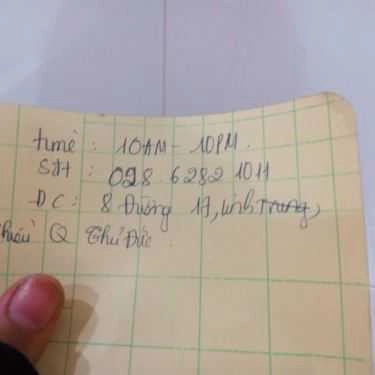 time : 10AM - 10PM.
SĐT : 028 6282 1011
ĐC : 8 Đường 17, Linh Trung,
Q Thủ Đức